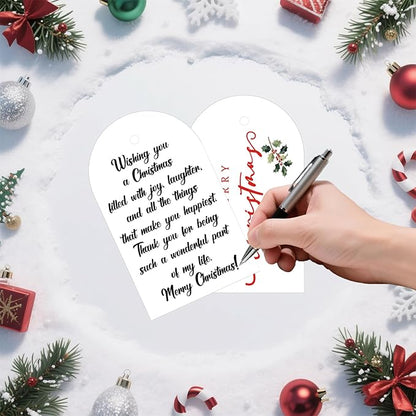 Wishing you
a Christmas
filled with joy, laughter,
and all the things
that make you happiest.
Thank you for being
such a wonderful part
of my life.
Merry Christmas!